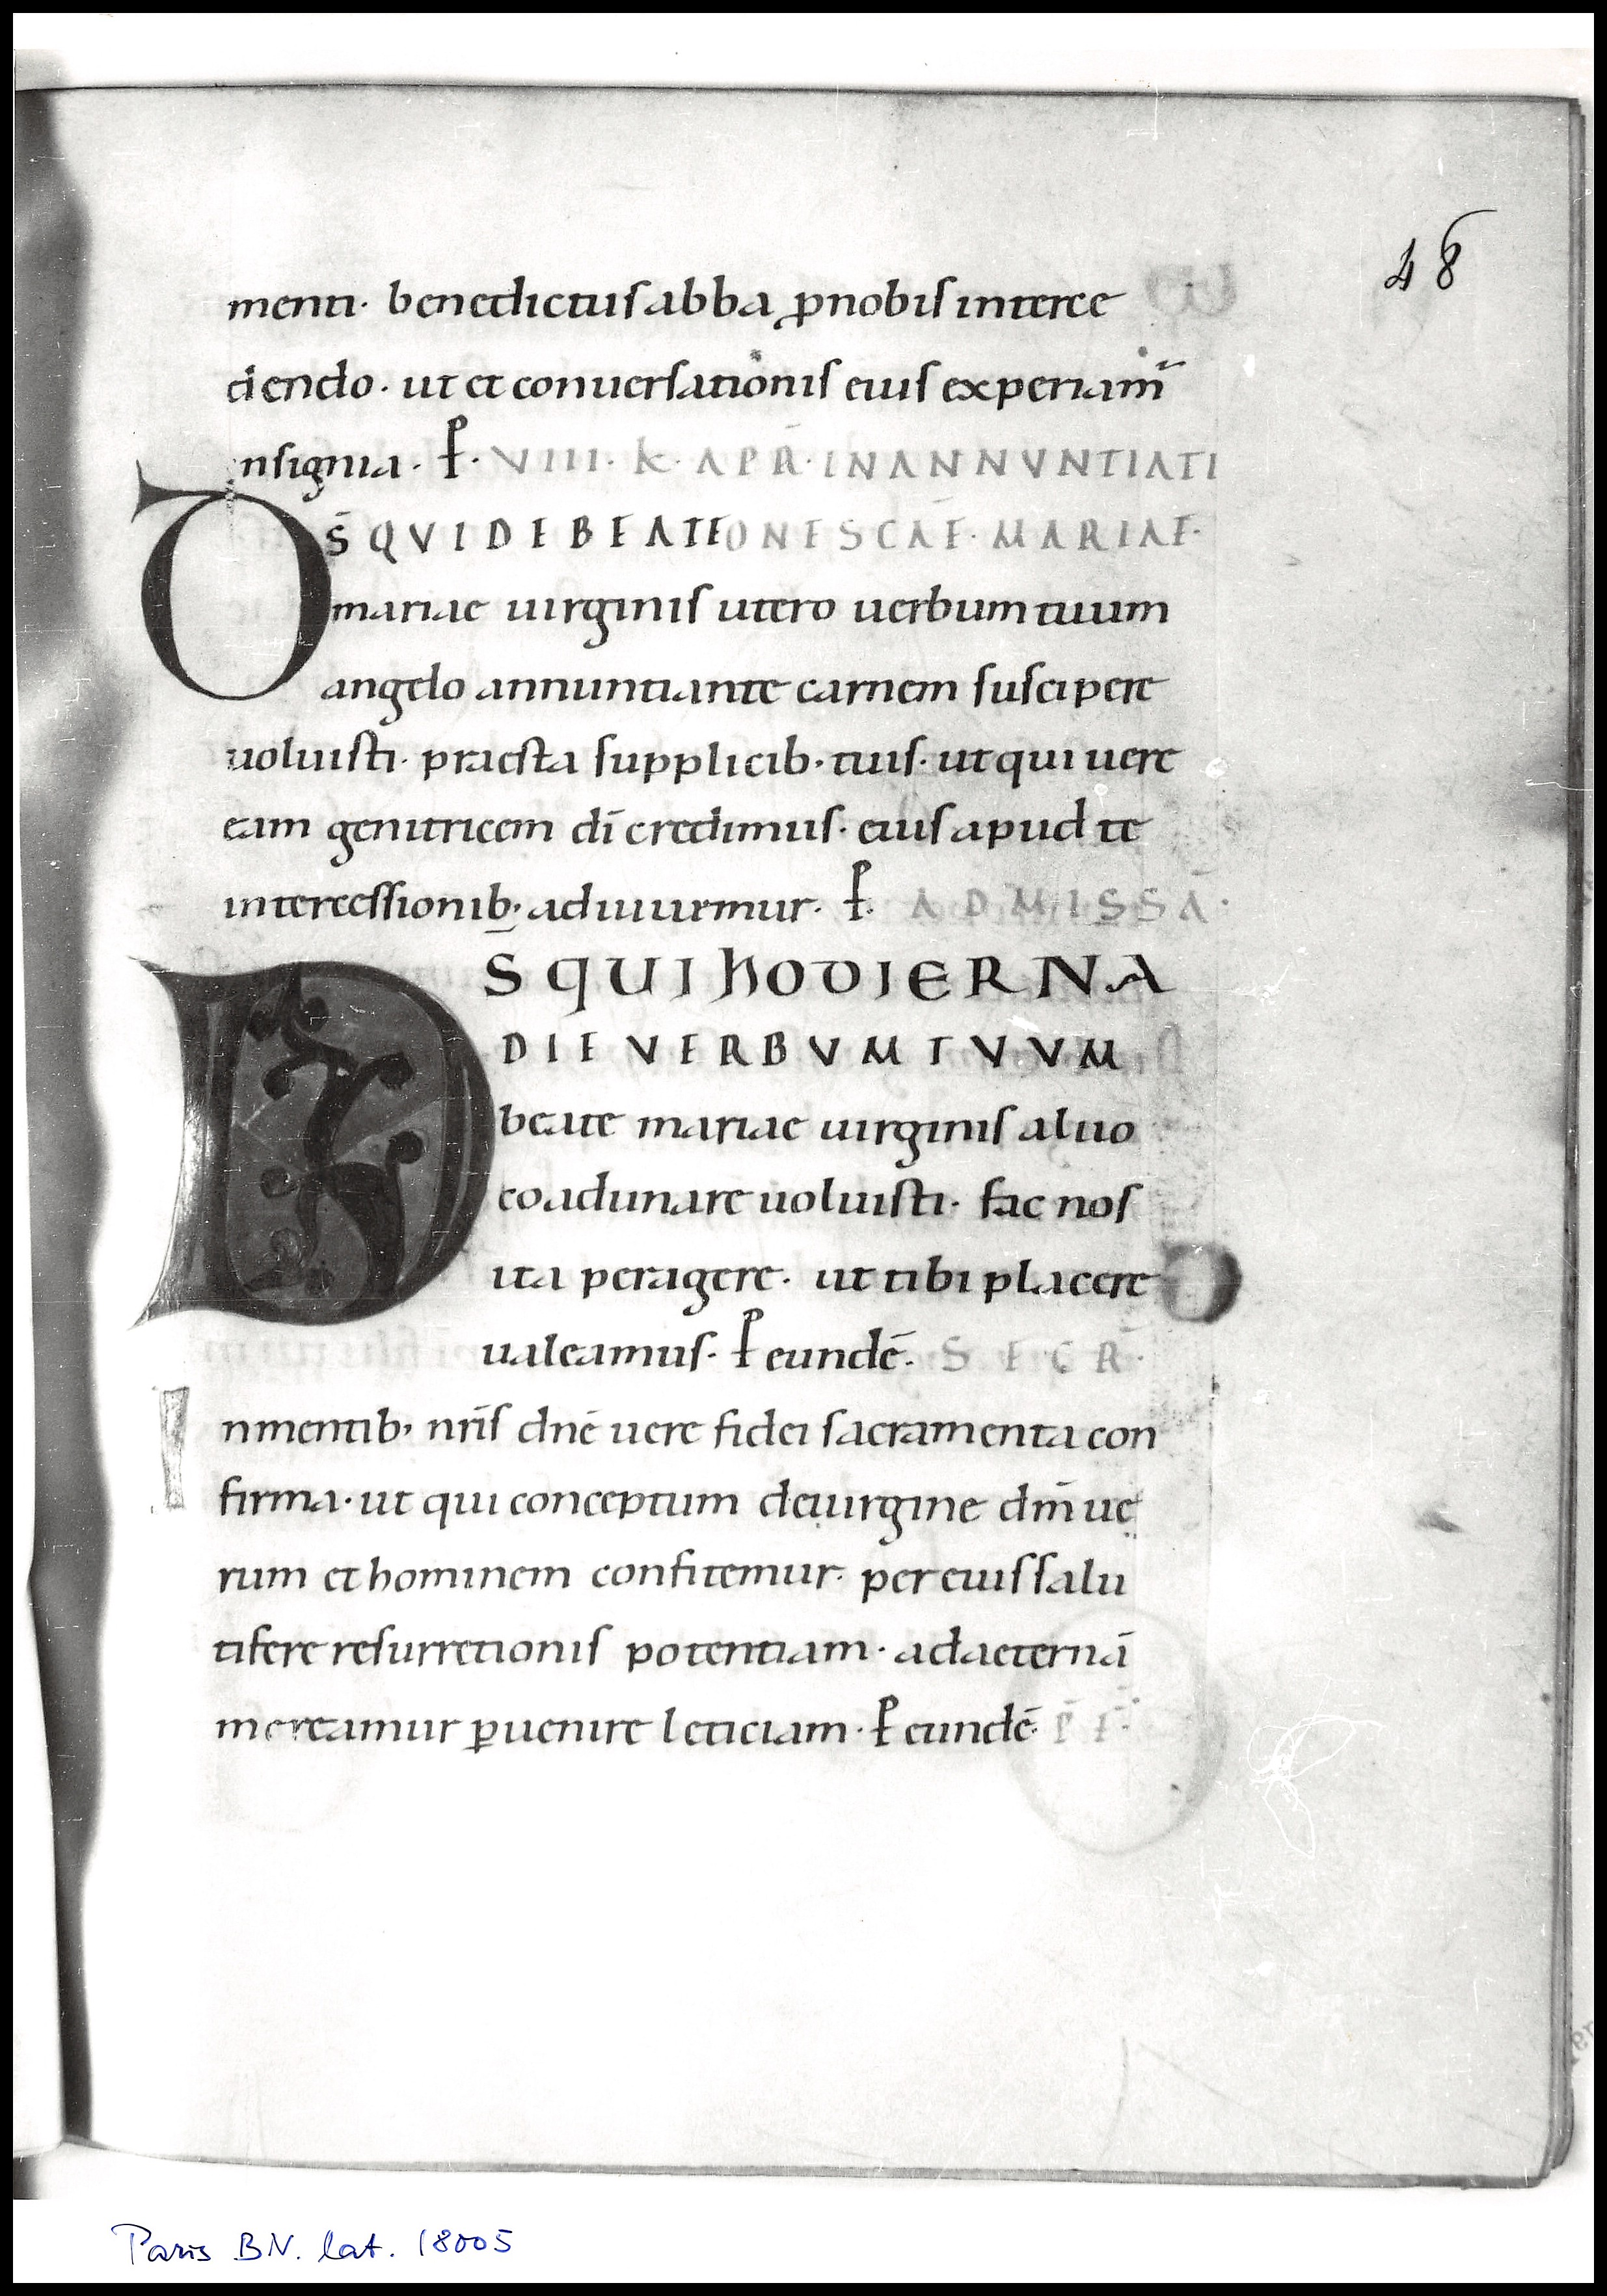 48
menti· benedictus abba, ꝓnobis interce
diendo· ut et conuersationis eius experiam̃
nsignia· P̱· VIII· K· APR̄· IN ANNVNTIATI
DS̄ QVI DE BEATE ONE SCĀE· MARIAE·
mariae uirginis utero uerbum tuum
angelo annuntiante carnem suscipere
uoluisti· praesta supplicib· tuis· ut qui uere
eam genitricem dī credimus· eius apud te
intercessionib; adiuuemur· P̱· AD MISSĀ·
DS̄ QUI HODIERNA
DIE VERBVM TVVM
beate mariae uirginis aluo
coadunare uoluisti· fac nos
ita peragere· ut tibi placere
ualeamus· P̱ eundē· SECR̄·
Inmentib; nrīs dnē uere fidei sacramenta con
firma· ut qui conceptum de uirgine dm̄ ue
rum et hominem confitemur· per eius salu
tifere resurretionis potentiam· ad aeternā
mereamur ꝑuenire leticiam· P̱ eundē· P̄ F̄·
Paris BN. lat. 18005